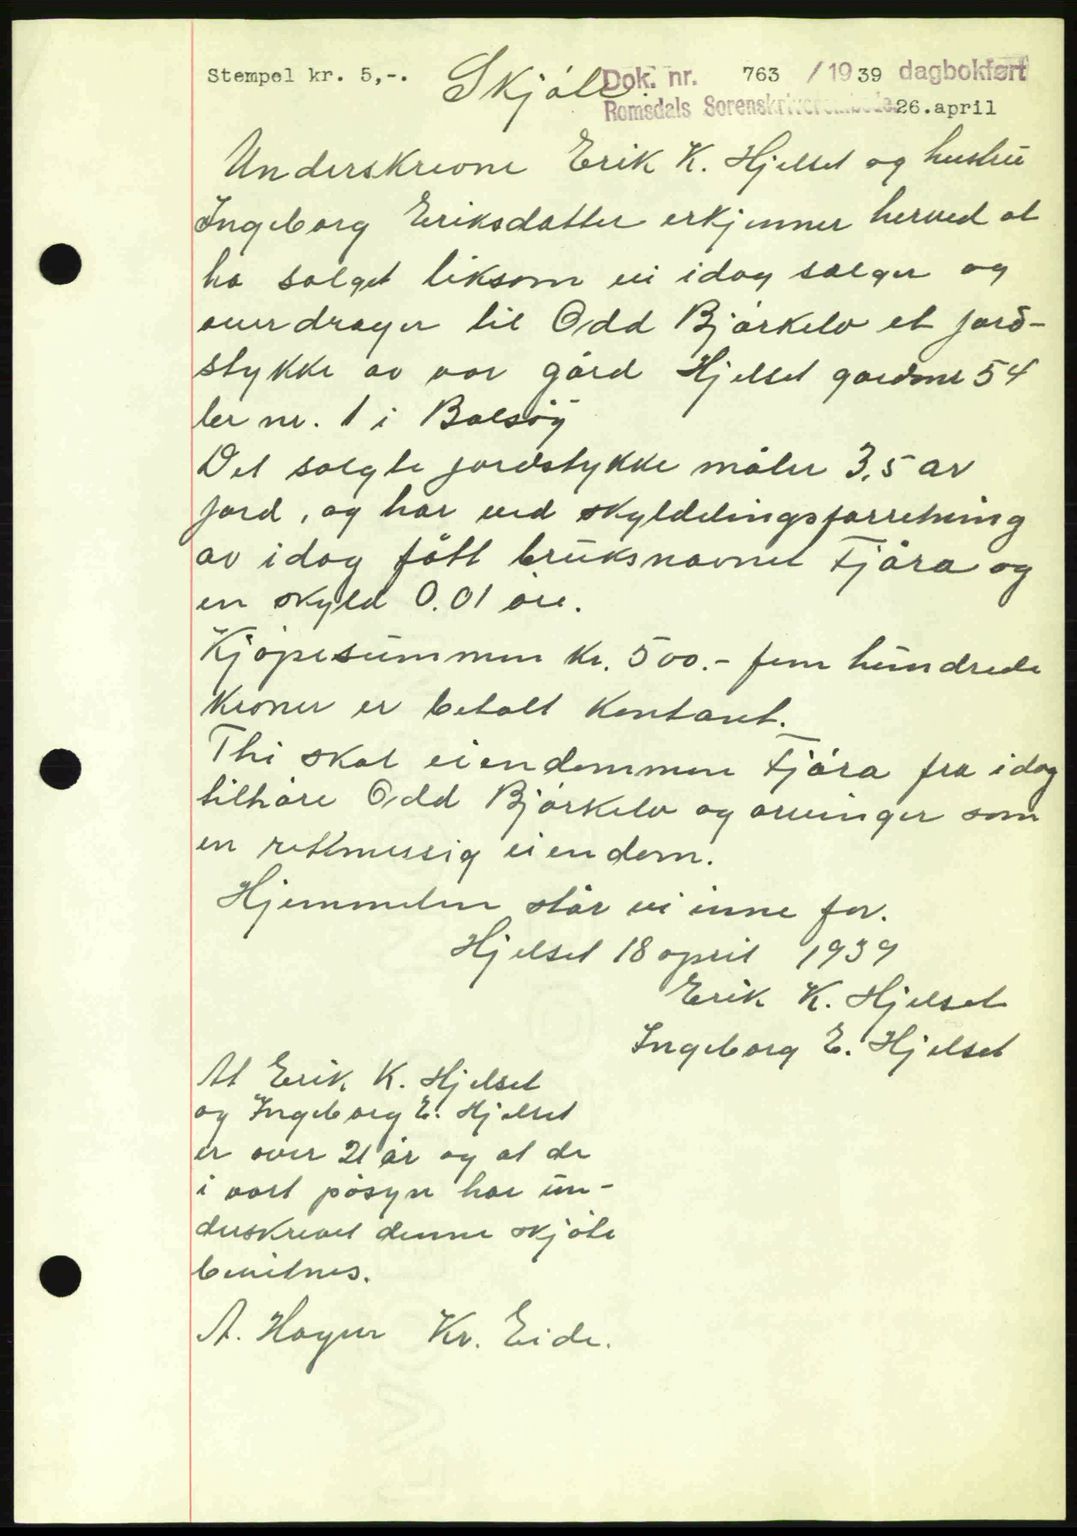 Stempel kr. 5,-. Skjöte. Dok. nr. 763 / 1939 dagbokført
Romsdals Sorenskriverembede 26.april
Underskrevne Erik K. Hjelset og hustru
Ingeborg Eriksdatter erkjenner herved at
ha solget liksom vi idag sælger og
overdrager til Odd Bjørkelo et jord-
stykke av vor gård Hjelset gardsnr 54
br nr. 1 i Bolsöy
Det solgte jordstykke måler 3,5 ar
jord, og har ved skylddelingsforretning
av idag fått bruksnavnet Fjåra og
en skyld 0.01 øre.
Kjøpesummen kr. 500.- fem hundrede
kroner er betalt kontant.
Thi skal eiendommen Fjåra fra idag
tilhøre Odd Bjørkelo og arvinger som
en rettmessig eiendom.
Hjemmelen står vi inne for.
Hjelset 18 april 1939
Erik K. Hjelset
Ingeborg E. Hjelset
At Erik K. Hjelset
og Ingeborg E. Hjelset
er over 21 år og at de
i vort påsyn har un-
derskrevet denne skjøte
bevitnes.
A. Kr. Eide.